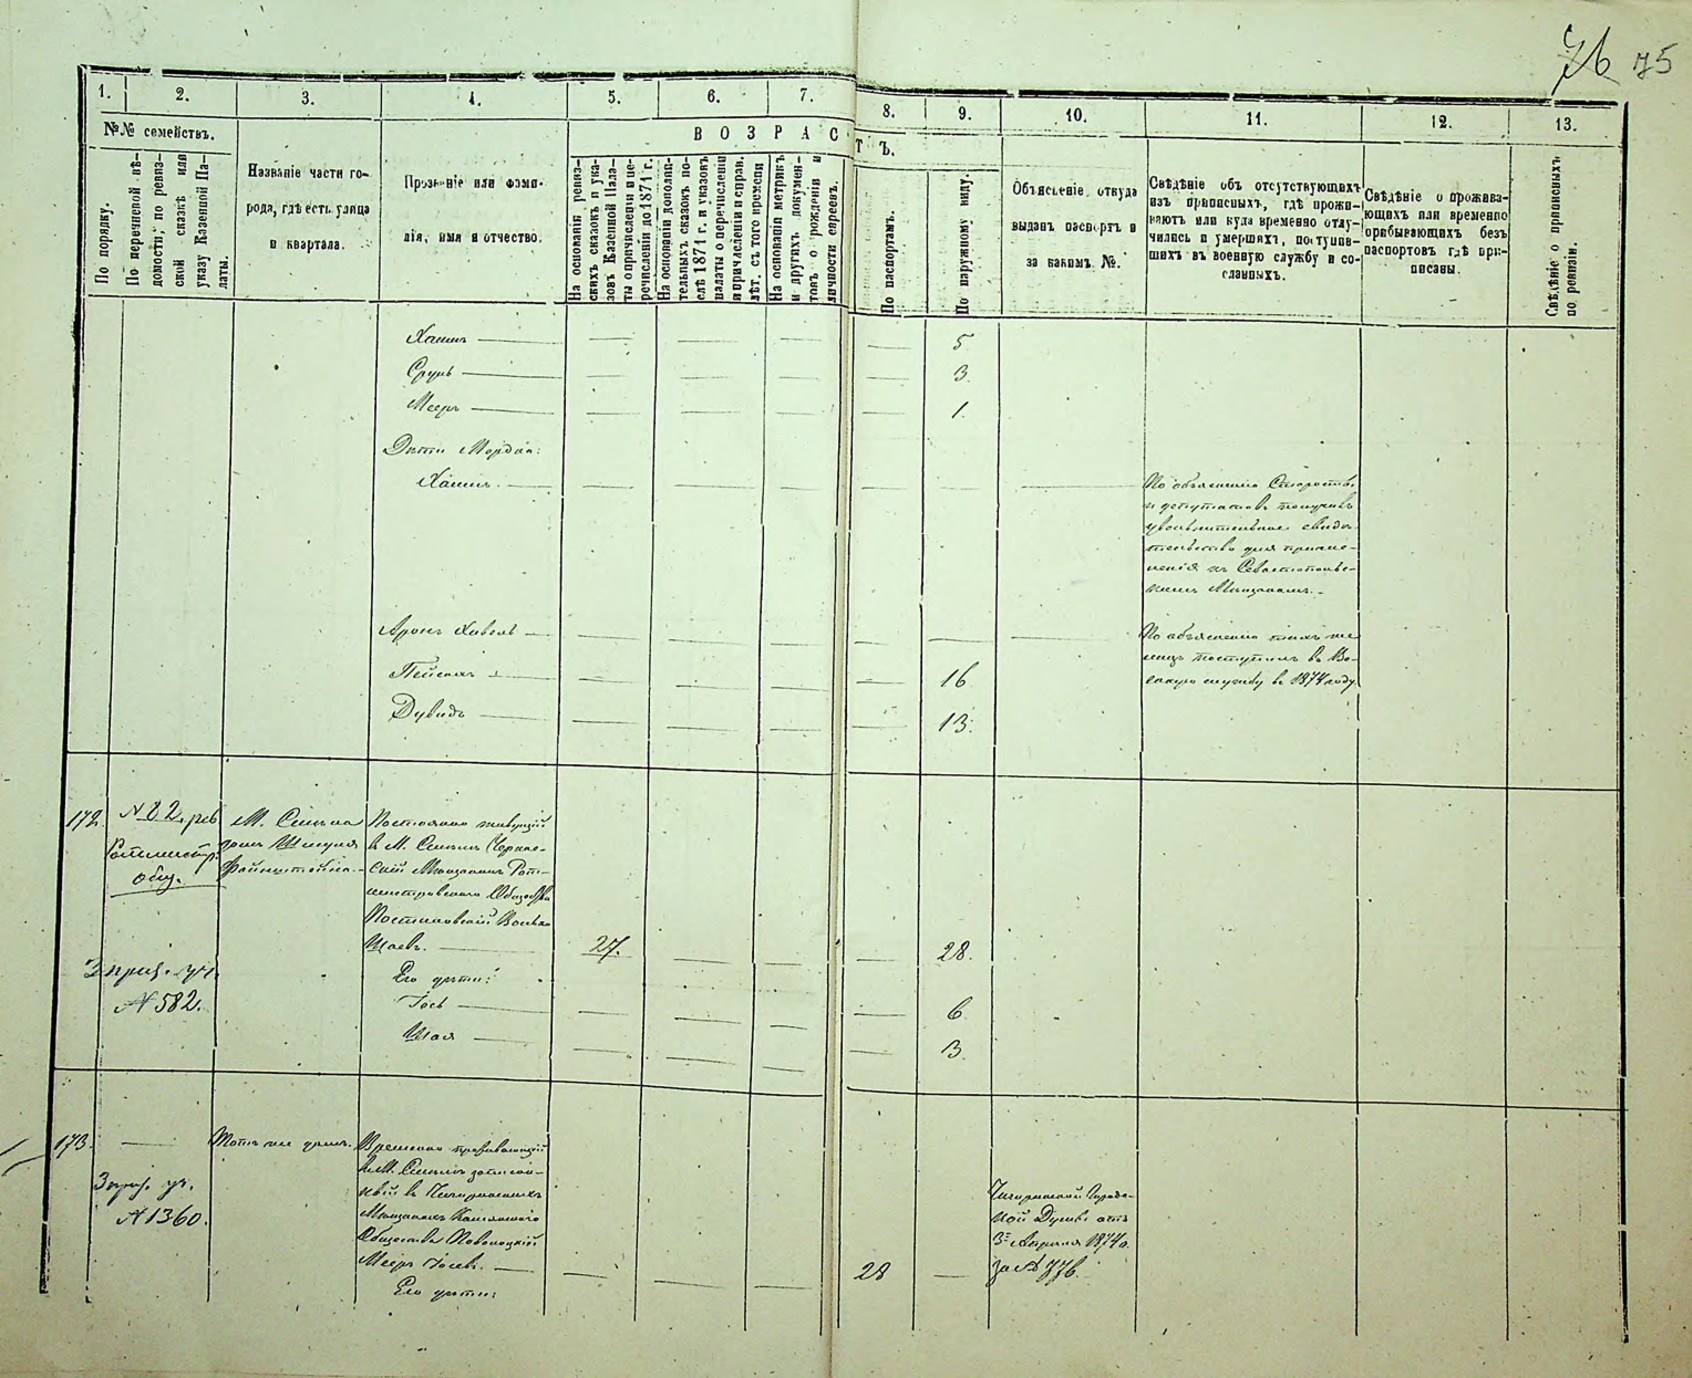 76 75
1. 2. 3. 4. 5. 6. 7. 8. 9. 10. 11. 12. 13.
№№ семействъ.
ВОЗРАСТЪ.
По порядку.
По перечневой вѣ-
домости; по ревиз-
ской сказкѣ или
указу Казенной Па-
латы.
Названіе части го-
рода, гдѣ есть улица
и квартала.
Прозваніе или фами-
лія, имя и отчество.
На основаніи ревиз-
скихъ сказокъ и ука-
зовъ Казенной Пала-
ты о причисленіи и пе-
речисленіи до 1871 г.
На основаніи дополни-
тельныхъ сказокъ по-
слѣ 1871 г. и указовъ
палаты о перечисленіи
и причисленіи и справ.
лѣт. съ того времени
На основаніи метрикъ
и другихъ докумен-
товъ о рожденіи и
личности евреевъ.
По паспортамъ.
По наружному виду.
Объясненіе откуда
выданъ паспортъ и
за какимъ №.
Свѣдѣніе объ отсутствующихъ
изъ приписныхъ, гдѣ прожи-
ваютъ или куда временно отлу-
чились и умершихъ, поступив-
шихъ въ военную службу и со-
сланныхъ.
Свѣдѣніе о прожива-
ющихъ или временно
пребывающихъ безъ
паспортовъ гдѣ при-
писаны.
Свѣдѣніе о приписныхъ
по ревизіи.
Хаимъ 5
Сруль 3
Мееръ 1.
Дѣти Мордка:
Хаимъ.
По объясненію Старосты
и депутатовъ получилъ
увольнительное свидѣ-
тельство для причис-
ленія къ Севастопольс-
кимъ Мѣщанамъ.
Аронъ Хавель
По объясненію тѣхъ же
лицъ поступилъ въ Во-
енную службу въ 1874 году
Пейсахъ 16
Дувидъ 13.
172. №82. рев
Ротмистр.
общ.
М. Смѣла
домъ Шмуля
Файнштейна.
Постоянно живущій
въ М. Смѣлѣ Черкас-
скій Мѣщанинъ Рот-
мистровскаго Общества
Шаевъ. 27. 28.
3 приз. уч.
№ 582.
Его дѣти:
Іось 6
Шая 3.
173.
Тотъ же домъ.
3 приз. уч.
№ 1360.
Временно пребывающій
въ М. Смѣлѣ записан-
ный въ Чигиринскихъ
Мѣщанахъ
Общества
Мееръ Іосевъ. 28
Чигиринской Городс-
кой Думы отъ
3го Апрѣля 1874 г.
за № 776.
Его дѣти: